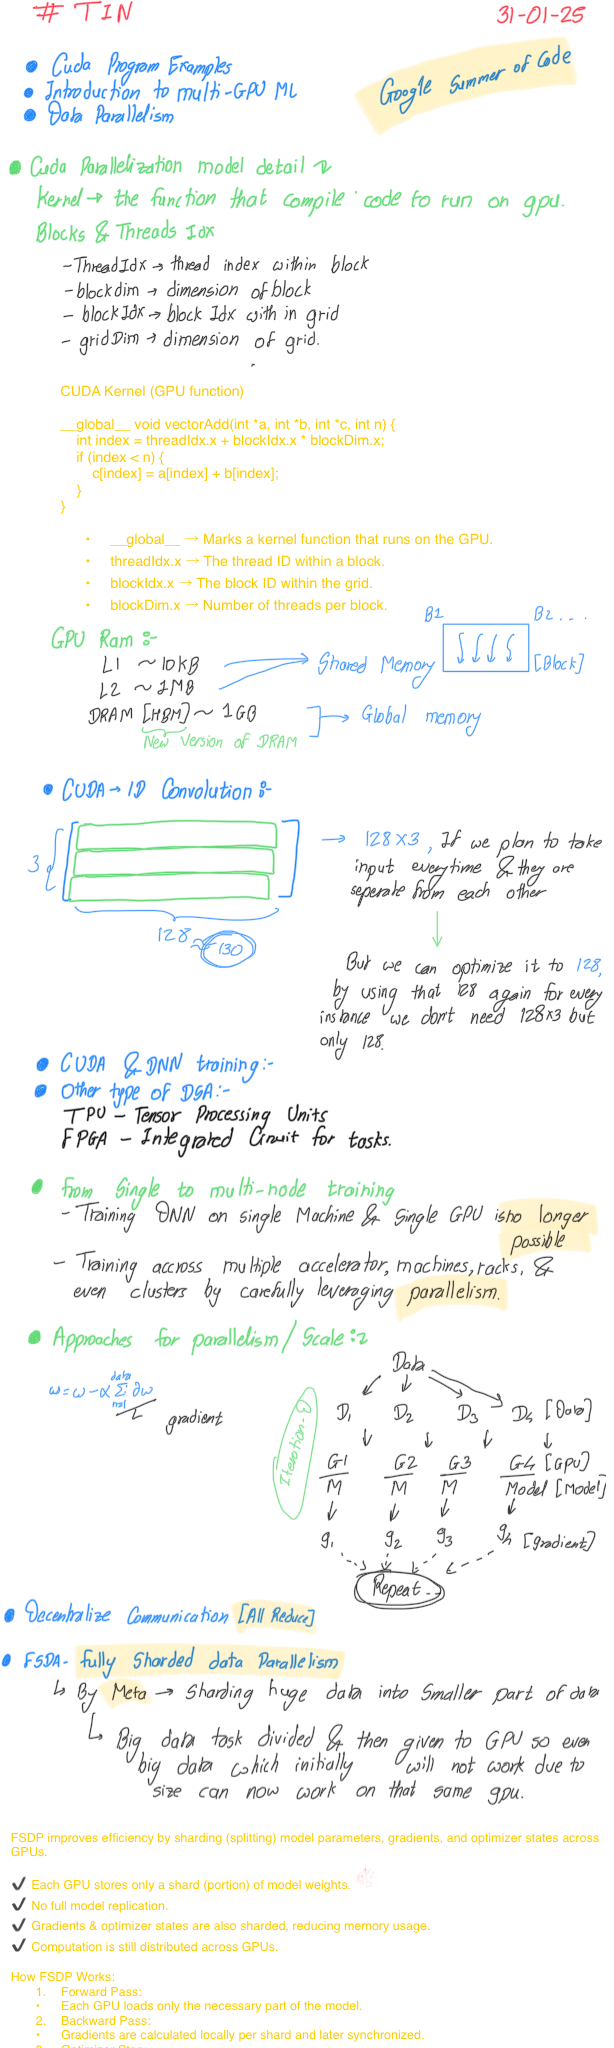 # TIN
31-01-25
• Cuda Program Examples
• Introduction to multi-GPU ML
• Data Parallelism
Google Summer of Code
• Cuda Parallelization model detail
Kernel → the function that compile code to run on gpu.
Blocks & Threads Idx
- ThreadIdx → thread index within block
- blockdim → dimension of block
- blockIdx → block Idx with in grid
- gridDim → dimension of grid.
CUDA Kernel (GPU function)
__global__ void vectorAdd(int *a, int *b, int *c, int n) {
int index = threadIdx.x + blockIdx.x * blockDim.x;
if (index < n) {
c[index] = a[index] + b[index];
}
}
• __global__ → Marks a kernel function that runs on the GPU.
• threadIdx.x → The thread ID within a block.
• blockIdx.x → The block ID within the grid.
• blockDim.x → Number of threads per block.
GPU Ram :-
L1 ~ 10KB
L2 ~ 1MB
DRAM [HBM] ~ 1GB
New Version of DRAM
Shared Memory
Global memory
B1
B2 ...
[Block]
• CUDA → 1D Convolution :-
3
128 ≈ 130
→ 128x3, If we plan to take
input everytime & they are
seperate from each other
But we can optimize it to 128,
by using that 128 again for every
instance we don't need 128x3 but
only 128.
• CUDA & DNN training:-
• Other type of DSA:-
TPU - Tensor Processing Units
FPGA - Integrated Circuit for tasks.
• from Single to multi-node training
- Training DNN on single Machine & Single GPU is no longer
possible
- Training accross multiple accelerator, machines, racks, &
even clusters by carefully leveraging parallelism.
• Approaches for parallelism / Scale :-
ω = ω - α Σ ∂ω
data
n=1
gradient
Iteration-1
Data
D1 D2 D3 D4 [Data]
G1 G2 G3 G4 [GPU]
M M M Model [Model]
g1 g2 g3 g4 [gradient]
Repeat...
• Decentralize Communication [All Reduce]
• FSDA- fully Sharded data Parallelism
↳ By Meta → Sharding huge data into Smaller part of data
↳ Big data task divided & then given to GPU so even
big data which initially will not work due to
size can now work on that same gpu.
FSDP improves efficiency by sharding (splitting) model parameters, gradients, and optimizer states across
GPUs.
✔ Each GPU stores only a shard (portion) of model weights.
✔ No full model replication.
✔ Gradients & optimizer states are also sharded, reducing memory usage.
✔ Computation is still distributed across GPUs.
How FSDP Works:
1. Forward Pass:
• Each GPU loads only the necessary part of the model.
2. Backward Pass:
• Gradients are calculated locally per shard and later synchronized.
3. Optimizer Step: